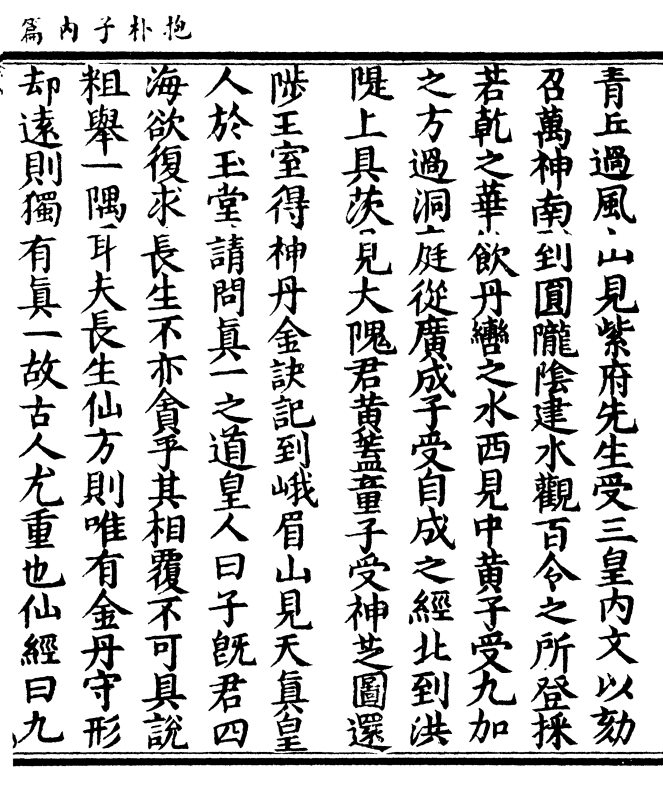 抱朴子内篇
青丘過風山見紫府先生受三皇内文以劾
召萬神南到圓隴陰建水觀百令之所登採
若乾之華飲丹轡之水西見中黄子受九加
之方過洞庭從廣成子受自成之經北到洪
隄上具茨見大隗君黄蓋童子受神芝圖還
陟王室得神丹金訣記到峨眉山見天眞皇
人於玉堂請問眞一之道皇人曰子旣君四
海欲復求長生不亦貪乎其相覆不可具說
粗舉一隅耳夫長生仙方則唯有金丹守形
却遠則獨有眞一故古人尤重也仙經曰九